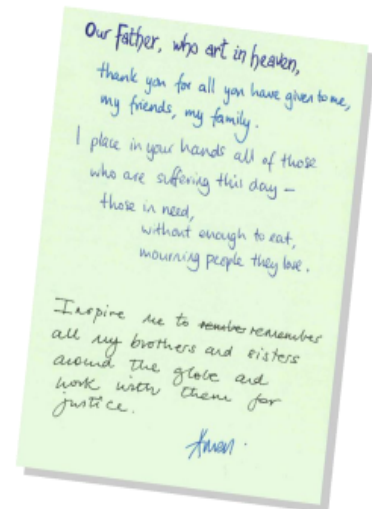 Our Father, who art in heaven,
thank you for all you have given to me,
my friends, my family.
I place in your hands all of those
who are suffering this day –
those in need,
without enough to eat,
mourning people they love.
Inspire me to remember
all my brothers and sisters
around the globe and
work with them for
justice.
Amen.